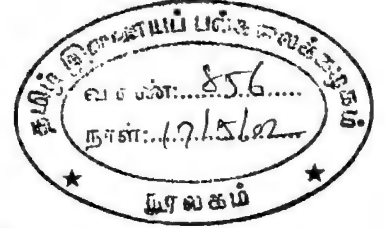 தமிழ் இணையப் பல்கலைக்கழகம்
வ எண்:......856......
நாள்:..17/5/02...
★ நூலகம் ★